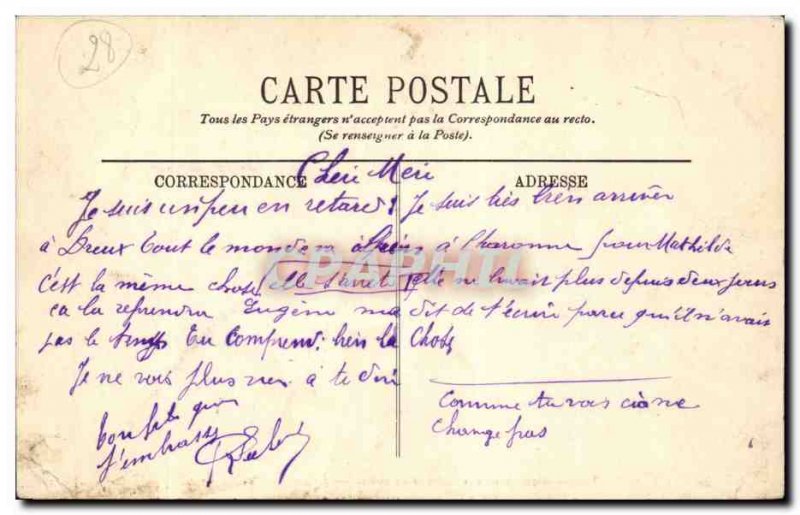 28
CARTE POSTALE
Tous les Pays étrangers n'acceptent pas la Correspondance au recto.
(Se renseigner à la Poste).
CORRESPONDANCE
ADRESSE
Cheri Meri
Je suis un peu en retard Je suis très bien arrivér
à Dreux tout le monde à Charonne pour Mathilde
c'est la même chose elle s'arrete elle ne buvait plus depuis deux jours
ca la reprendra Eugène ma dit de t'écrire parce qu'il n'avais
pas le temps tu comprend bien la chose
Je ne vois plus rien à te dire
ton fils qui
t'embrasse
Comme tu vois ca ne
change pas
CPAPHIL